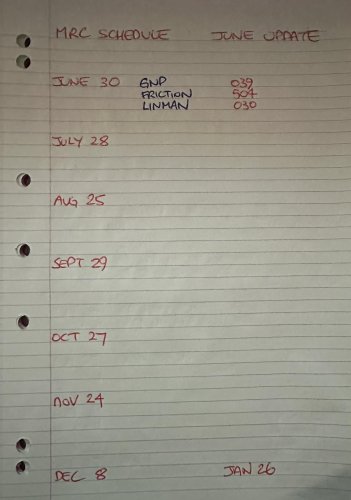 MRC SCHEDULE JUNE UPDATE
JUNE 30 GNP 039
FRICTION 504
LINMAN 030
JULY 28
AUG 25
SEPT 29
OCT 27
NOV 24
DEC 8 JAN 26